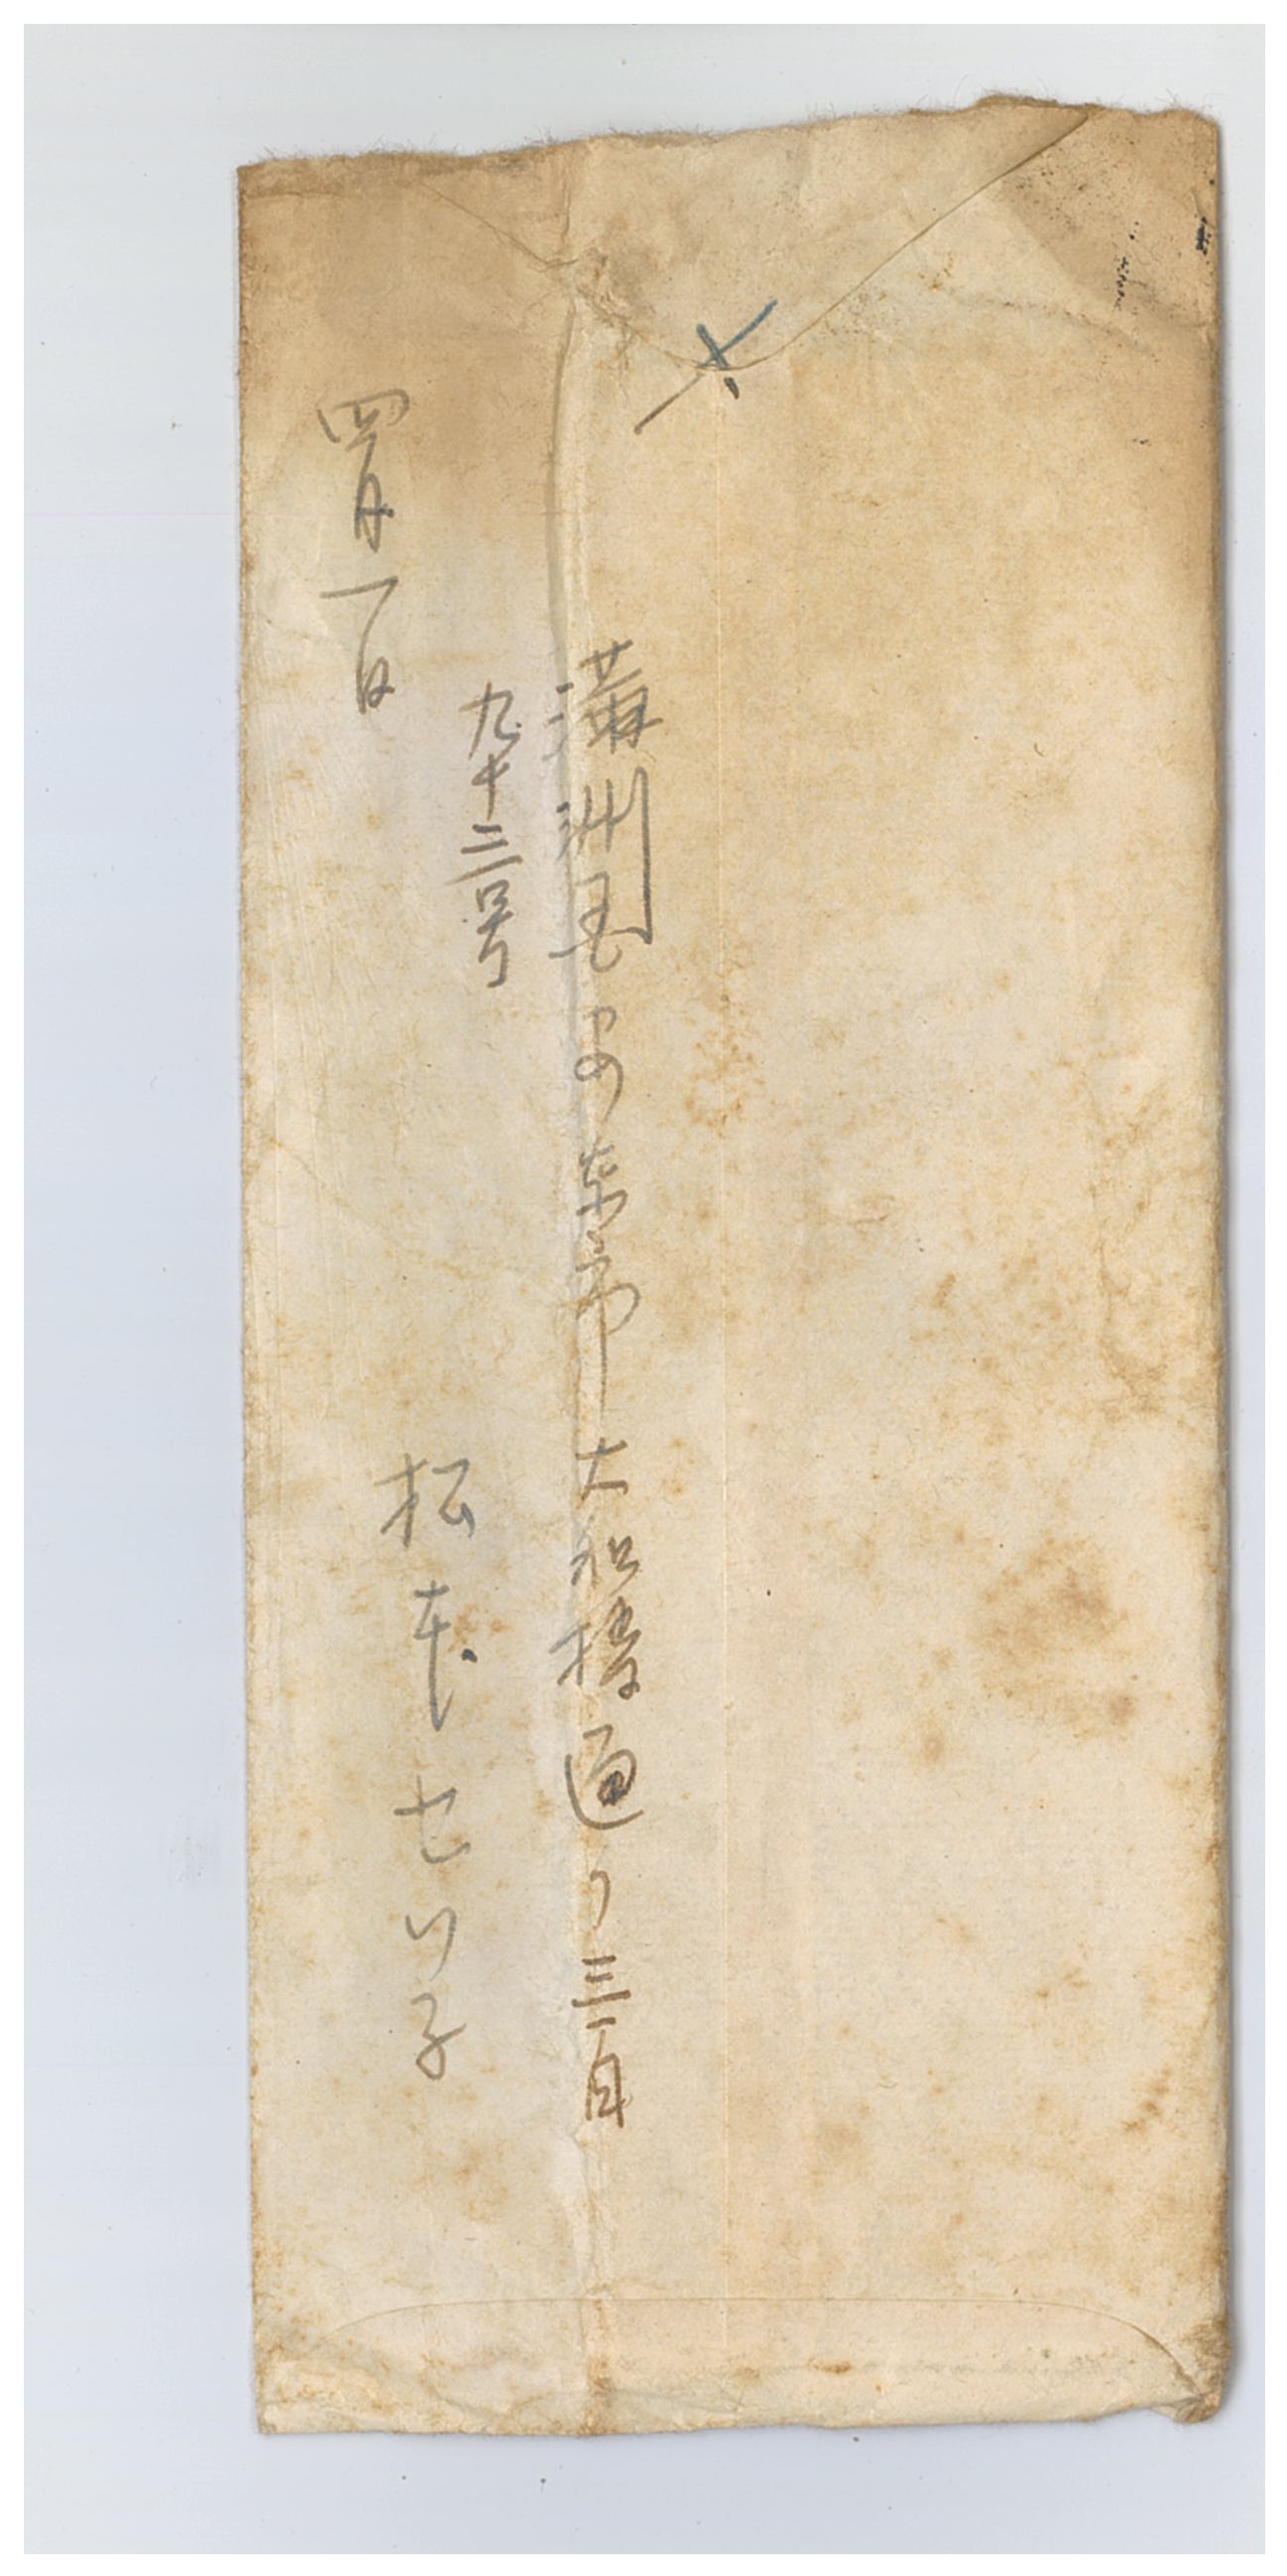 〆
満洲国安東市大和橋通り三百
九十三号
松本せい子
四月一日